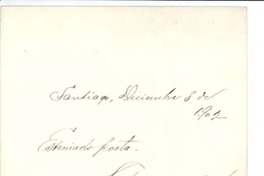 Santiago, Diciembre 8 de
1902
Estimado poeta.